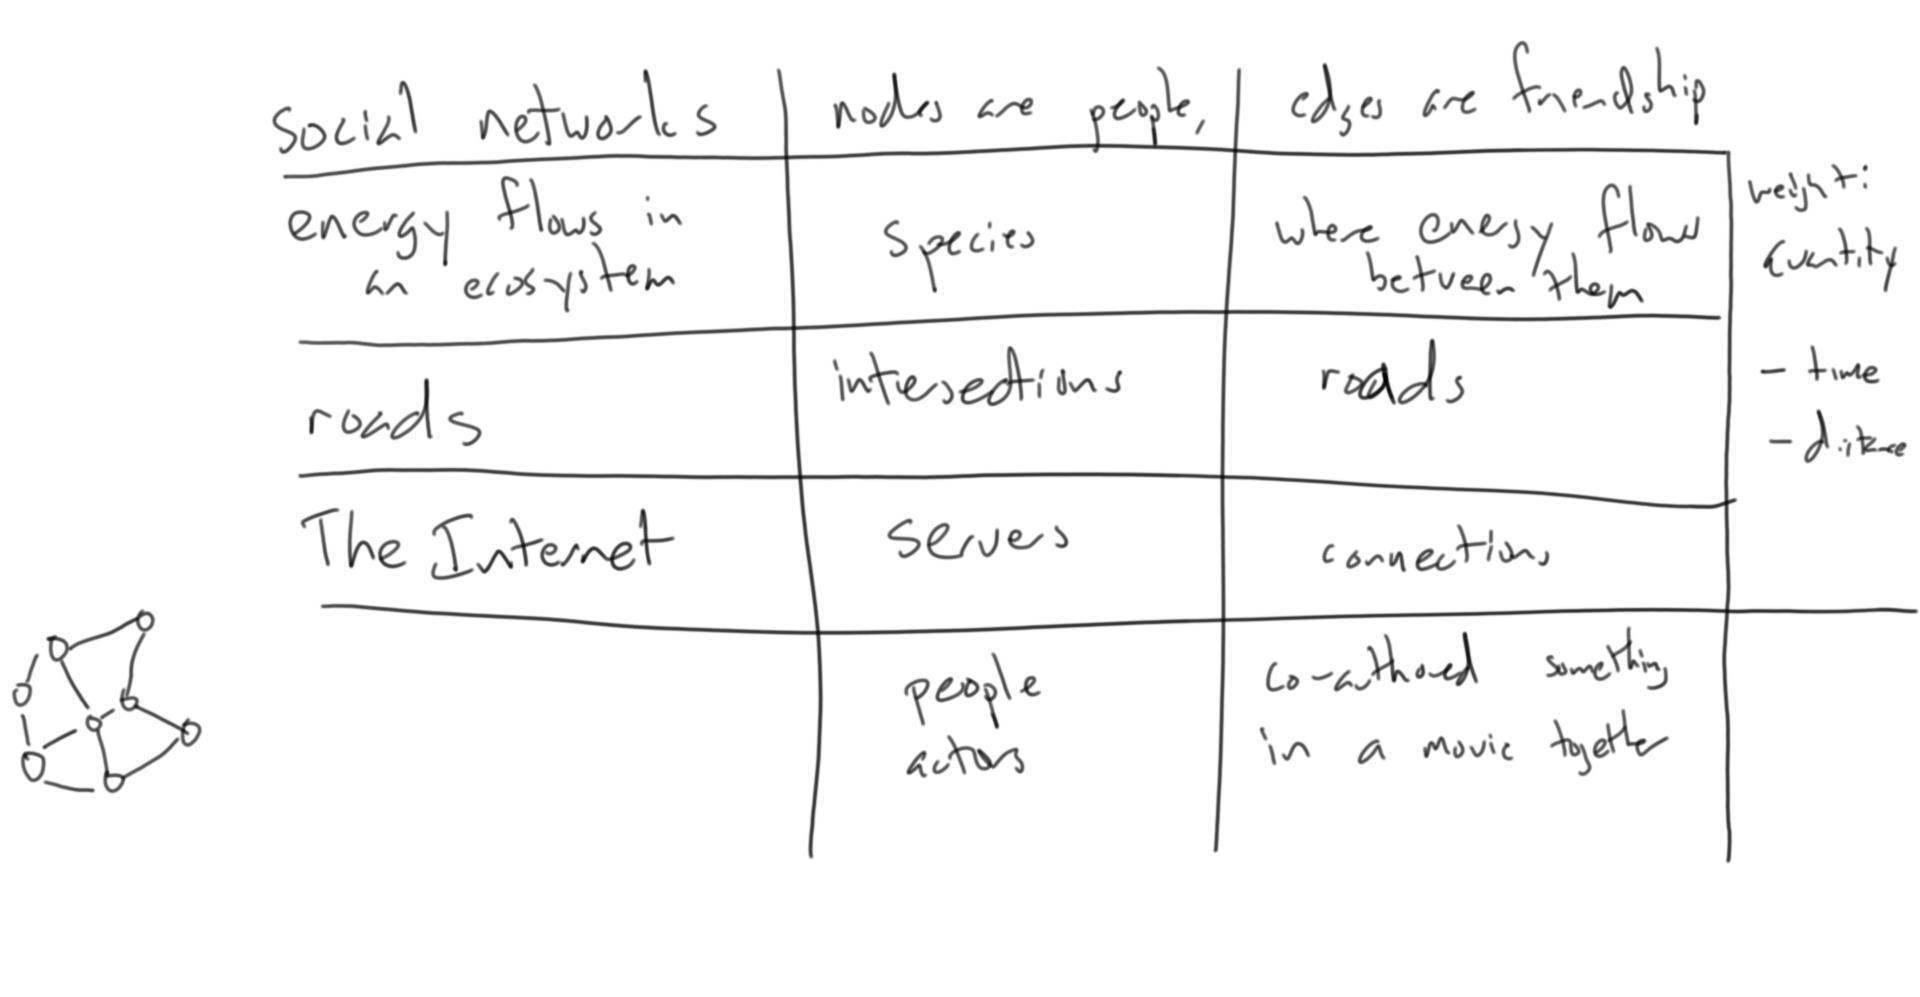 Social networks nodes are people, edges are friendship
energy flows in
an ecosystem
species
where energy flows
between them
weight:
quantity
roads
intersections
roads
- time
- distance
The Internet
servers
connections
people
co-authored something
actors
in a movie together